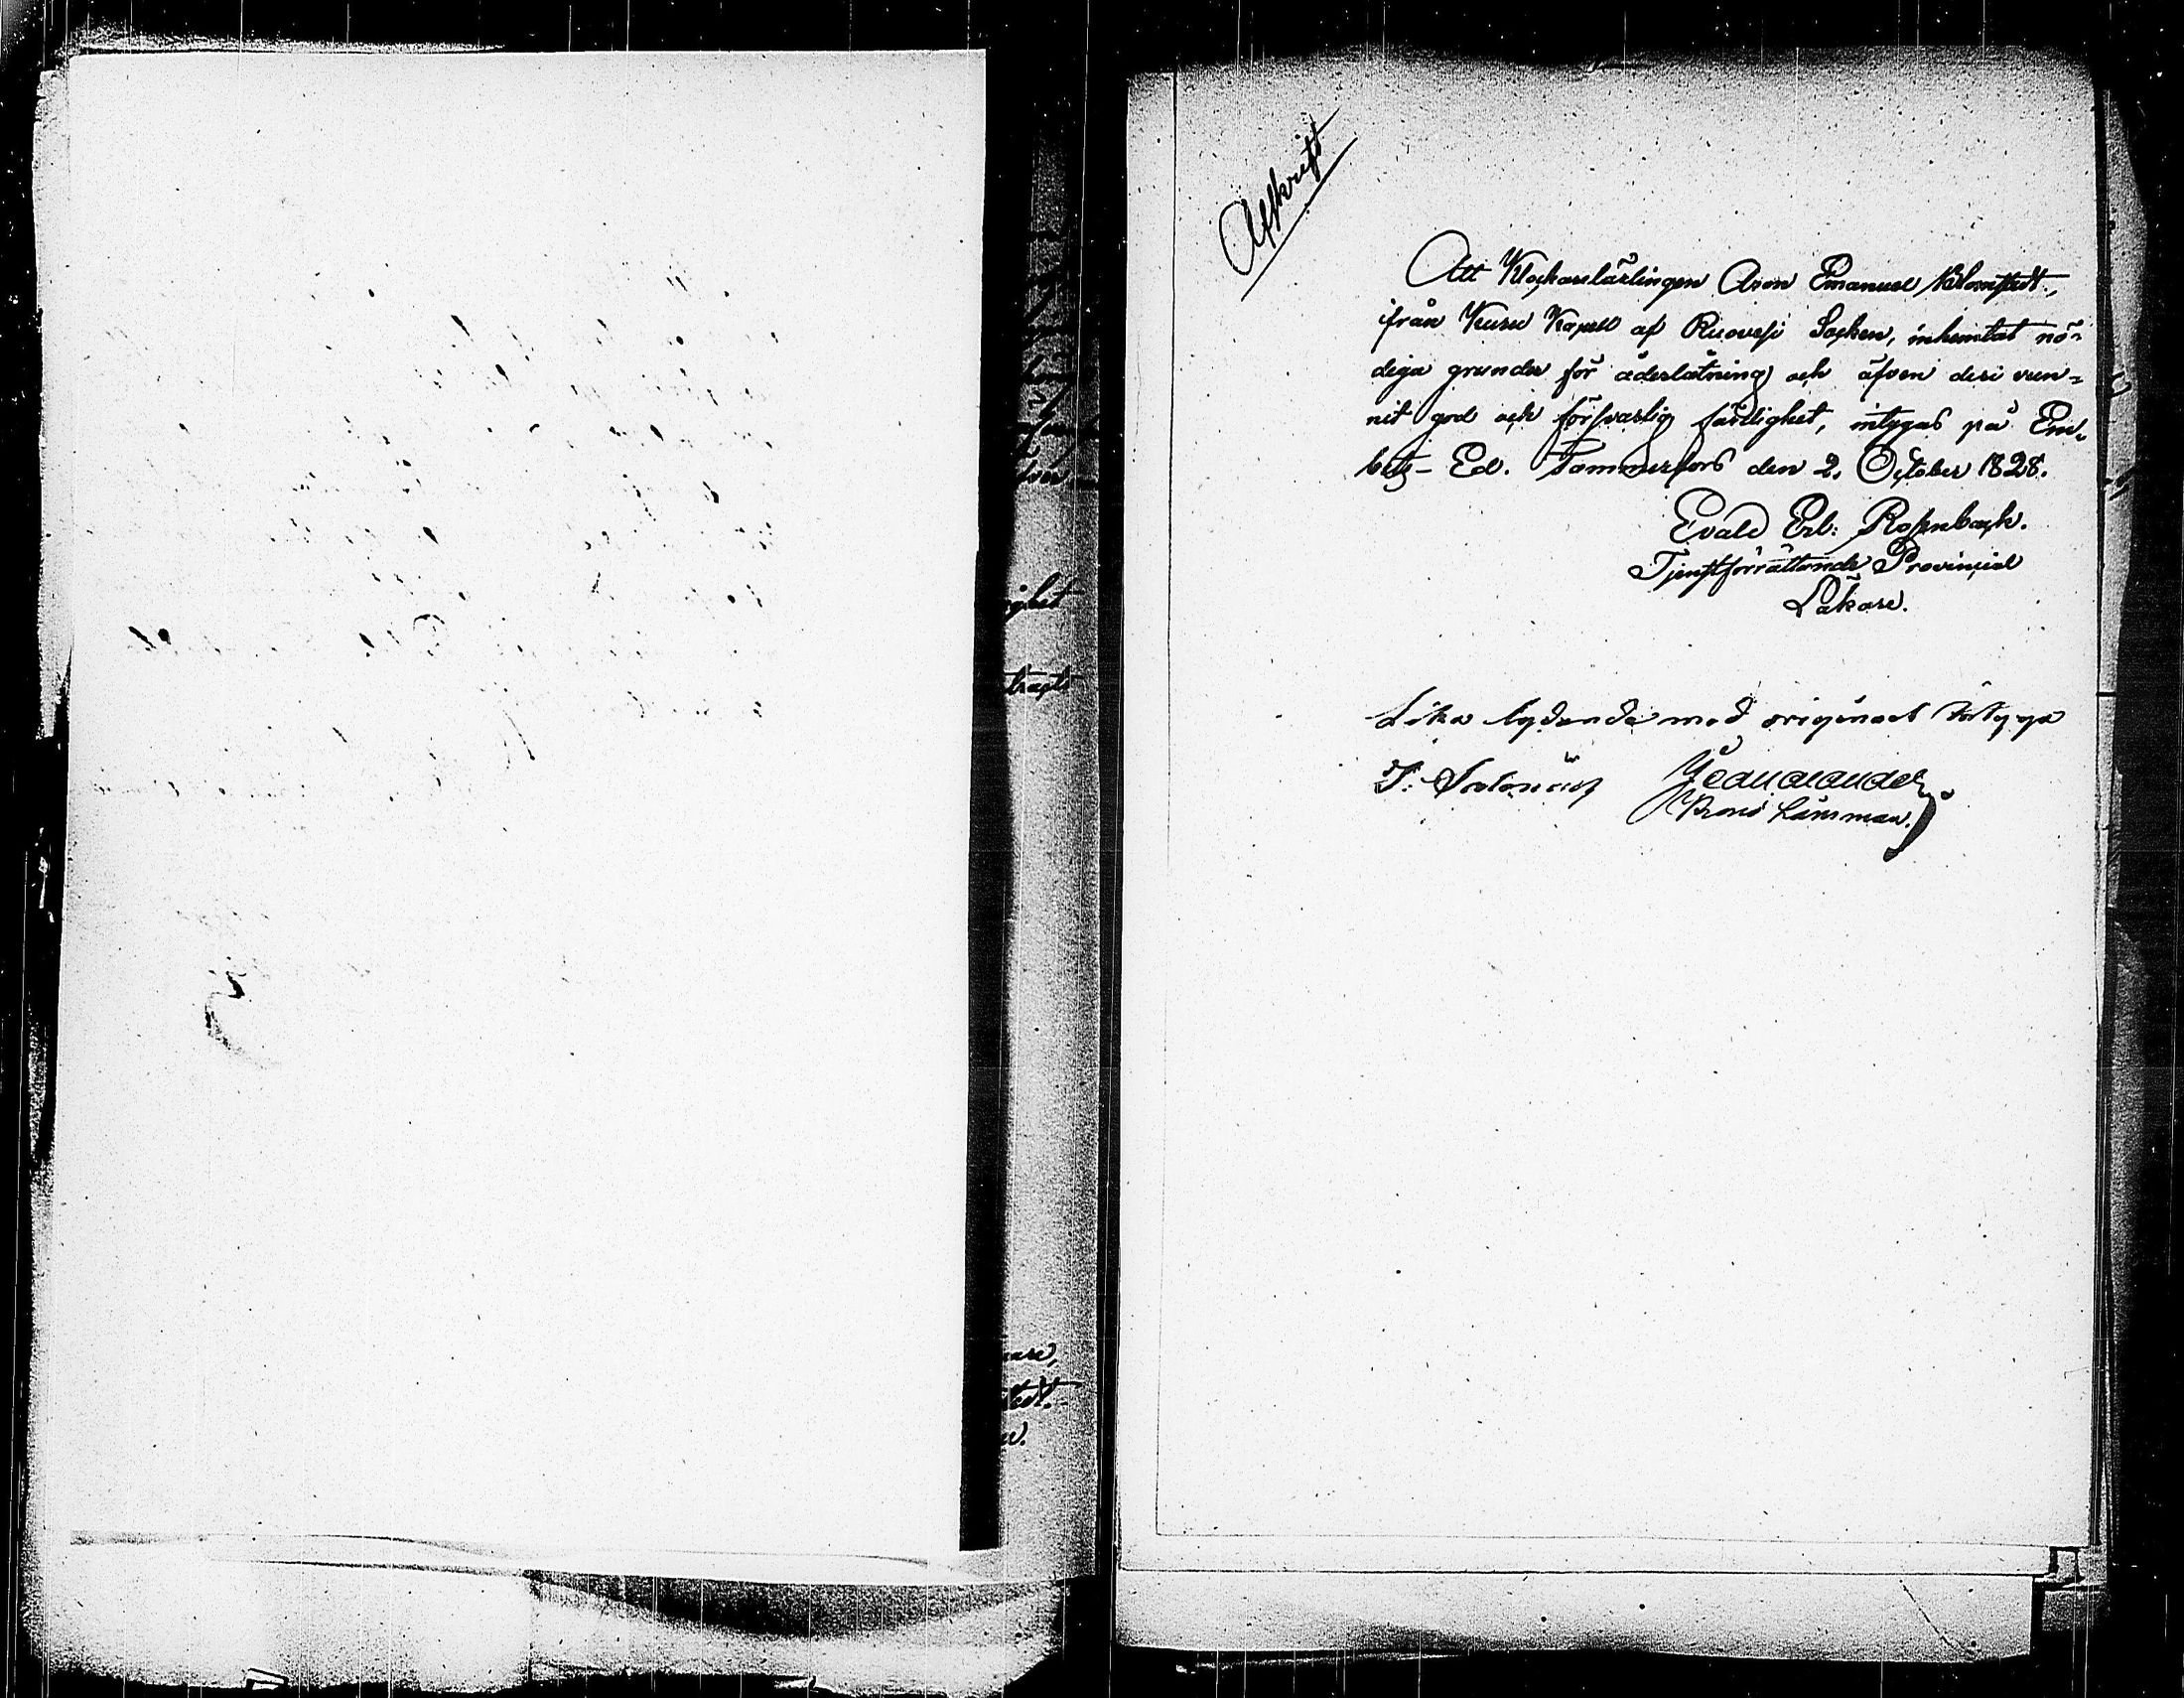 Afskrift
Att Klockarelärlingen Aron Emanuel Blomstedt,
ifrån Kuru Kapell af Ruovesi Socken, inhemtat nö-
diga grunder för åderlåtning och äfven deri vun-
nit god och försvarlig färdighet, intygas på Em-
bets-Ed. Tammerfors den 2. October 1828.
Evald Erl: Rosenback.
Tjenstförrättande Provincial
Läkare.
Lika lydande med originalet intyga
Krono Länsman.
ghet
are,
tedt.